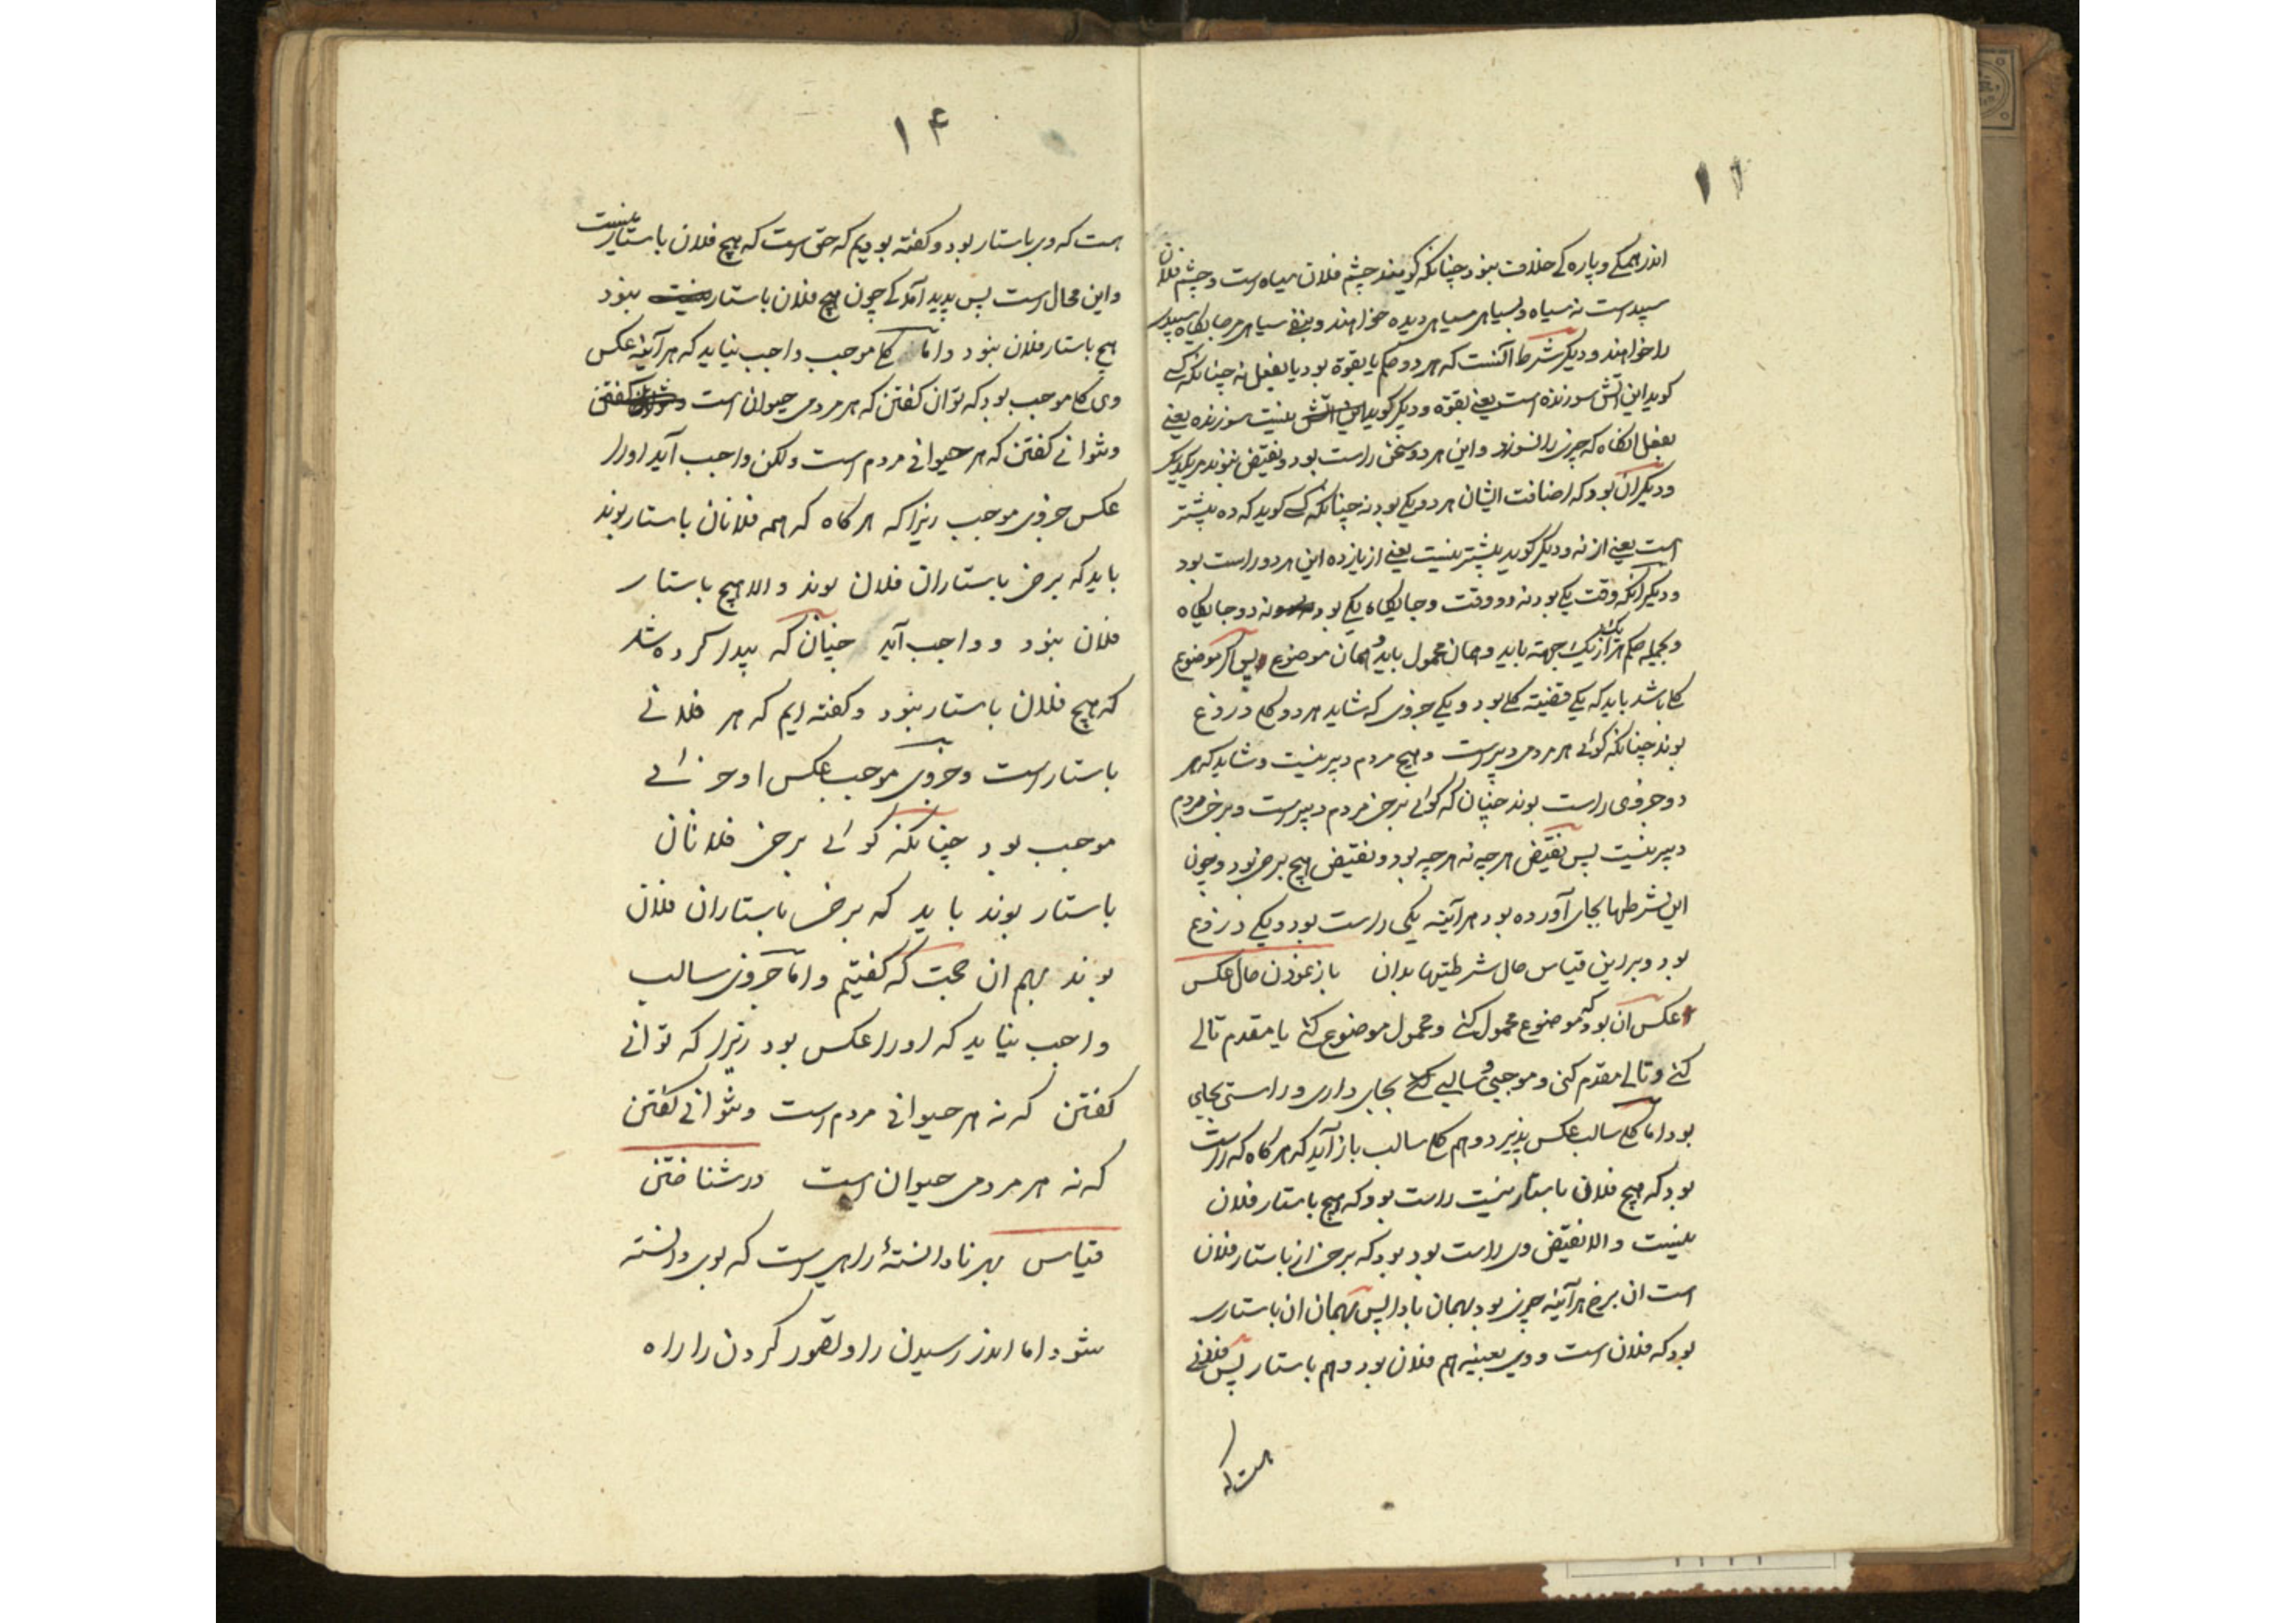 ۱۲
اندر همگی و پاره کے خلاف نبود چنانکه کویند چشم فلان سیاه است و چشم فلان
سپید است نه سیاه و بسیاهی سیاهی دیده خواهند و بنفی سیاهی جایکاه سپیدی
را خواهند و دیکر شرط آنست که هر دو حکم یا بقوة بود یا بفعل نه چنانکه کسے
کوید این اتش سوزنده است یعنے بقوه و دیکر کوید این اتش نیست سوزنده یعنے
بفعل انکاه که چیزی را نسوزد و این هر دو سخن راست بود و نقیض نبوند مر یکدیکر
و دیکر ان بود که اضافت ایشان هر دو یکے بود نه چنانکه کسے کوید که ده بیشتر
است یعنے از نه و دیکر کوید بیشتر نیست یعنے از یازده این هر دو راست بود
و دیکر آنکه وقت یکے بود نه دو وقت و جایکاه یکے بود نه دو جایکاه
و بجمله حکم هر از یک جهته باید و همان محمول باید و همان موضوع پس اکر موضوع
کلے باشد باید که یکے قضیته کلے بود و یکے جزوی که شاید هر دو کلے دروغ
بوند چنانکه کوئی هر مردمی دبیر است و هیچ مردم دبیر نیست و شاید که هر
دو جزوی راست بوند چنان که کوئی برخی مردم دبیر است و برخی مردم
دبیر نیست پس نقیض هر چه نه هر چه بود و نقیض هیچ برخی بود و چون
این شرطها بجای آورده بود هر آینه یکی راست بود و یکے دروغ
بود و برین قیاس حال شرطیتها بدان باز نمودن حال عکس
عکس آن بود که موضوع محمول کنے و محمول موضوع کنے یا مقدم تالے
کنے و تالے مقدم کنی و موجبی و سالبے بجای داری و راستی بجای
بود اما کلے سالب عکس پذیرد و هم کلے سالب باز آید که هر کاه که راست
بود که هیچ فلان باستار نیست راست بود که هیچ باستار فلان
نیست و الا نقیض وی راست بود بود که برخی از باستار فلان
است ان برخ هر آینه چیزی بود بهمان بادا پس بهمان ان باستاری
بود که فلان است و وی بعینه هم فلان بود و هم باستار پس فلانے
هست که
۱۴
هست که وی باستار بود و کفته بودیم که حق است که هیچ فلان باستار نیست
و این محال است پس پدید آمد کے چون هیچ فلان باستار نبود
هیچ باستار فلان نبود و اما کلے موجب واجب نیاید که هر آینه عکس
وی کلے موجب بود که توان کفتن که هر مردمی حیوان است
و نتوانے کفتن که هر حیوانے مردم است ولکن واجب آید اورا
عکس جزوی موجب زیرا که هر کاه که همه فلانان باستار بوند
باید که برخی باستاران فلان بوند و الا هیچ باستار
فلان نبود و واجب آید چنان که پیدا کرده شد
که هیچ فلان باستار نبود و کفته ایم که هر فلانے
باستار است و جزوی موجب عکس او جزئے
موجب بود چنانکه کوئی برخی فلانان
باستار بوند باید که برخی باستاران فلان
بوند بهم ان حجت که کفتیم و اما جزوی سالب
واجب نیاید که اورا عکس بود زیرا که توانے
کفتن که نه هر حیوانے مردم است و نتوانے کفتن
که نه هر مردمی حیوان است در شناختن
قیاس بهر نادانستهٔ راهی است که بوی دانسته
شود اما اندر رسیدن را و تصور کردن را راه